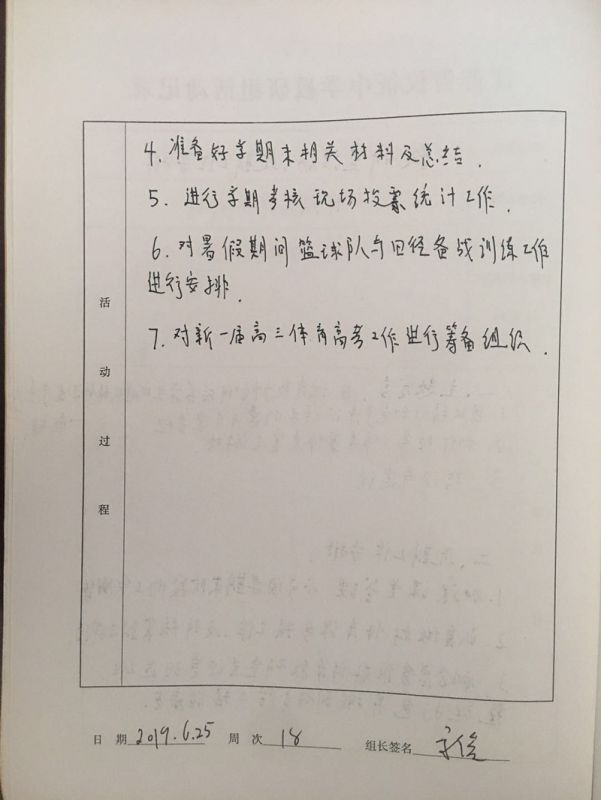 4. 准备好学期末相关材料及总结.
5. 进行学期考核现场投票统计工作.
6. 对暑假期间篮球队与田径备战训练工作
进行安排.
7. 对新一届高三体育高考工作进行筹备组织.
活
动
过
程
日 期 2019.6.25 周 次 18 组长签名